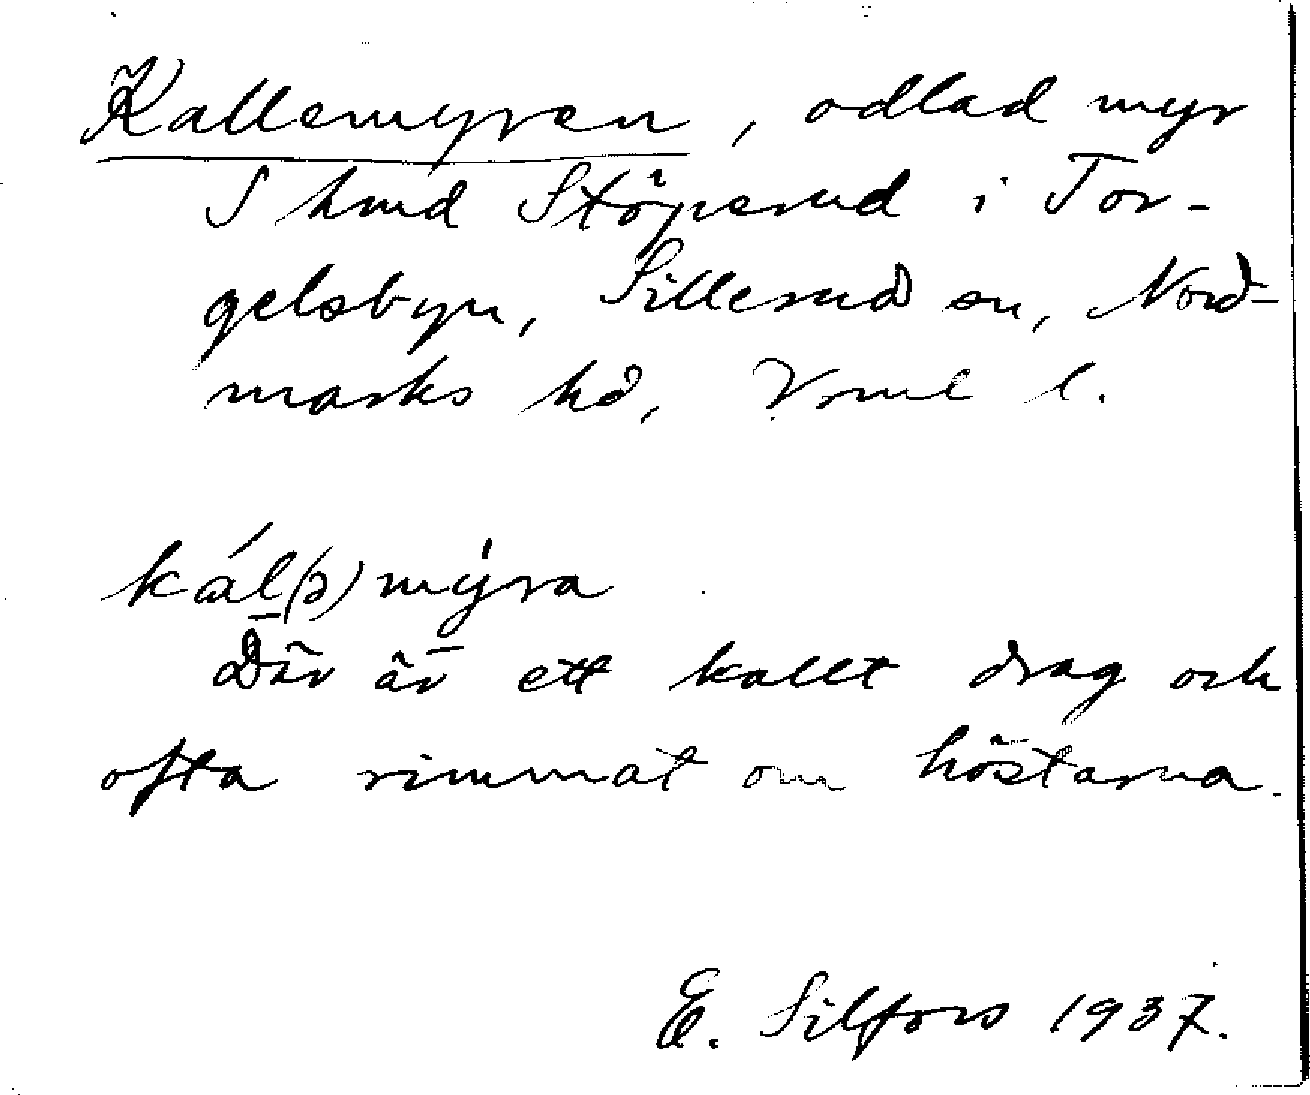 Kallemyren, odlad myr
S hmd Stöperud i Tor-
gelsbyn, Sillerud sn, Nord-
marks hd, Vrml l.
kál(ə)mýra
Där är ett kallt drag och
ofta rimmat om höstarna.
E. Silfors 1937.